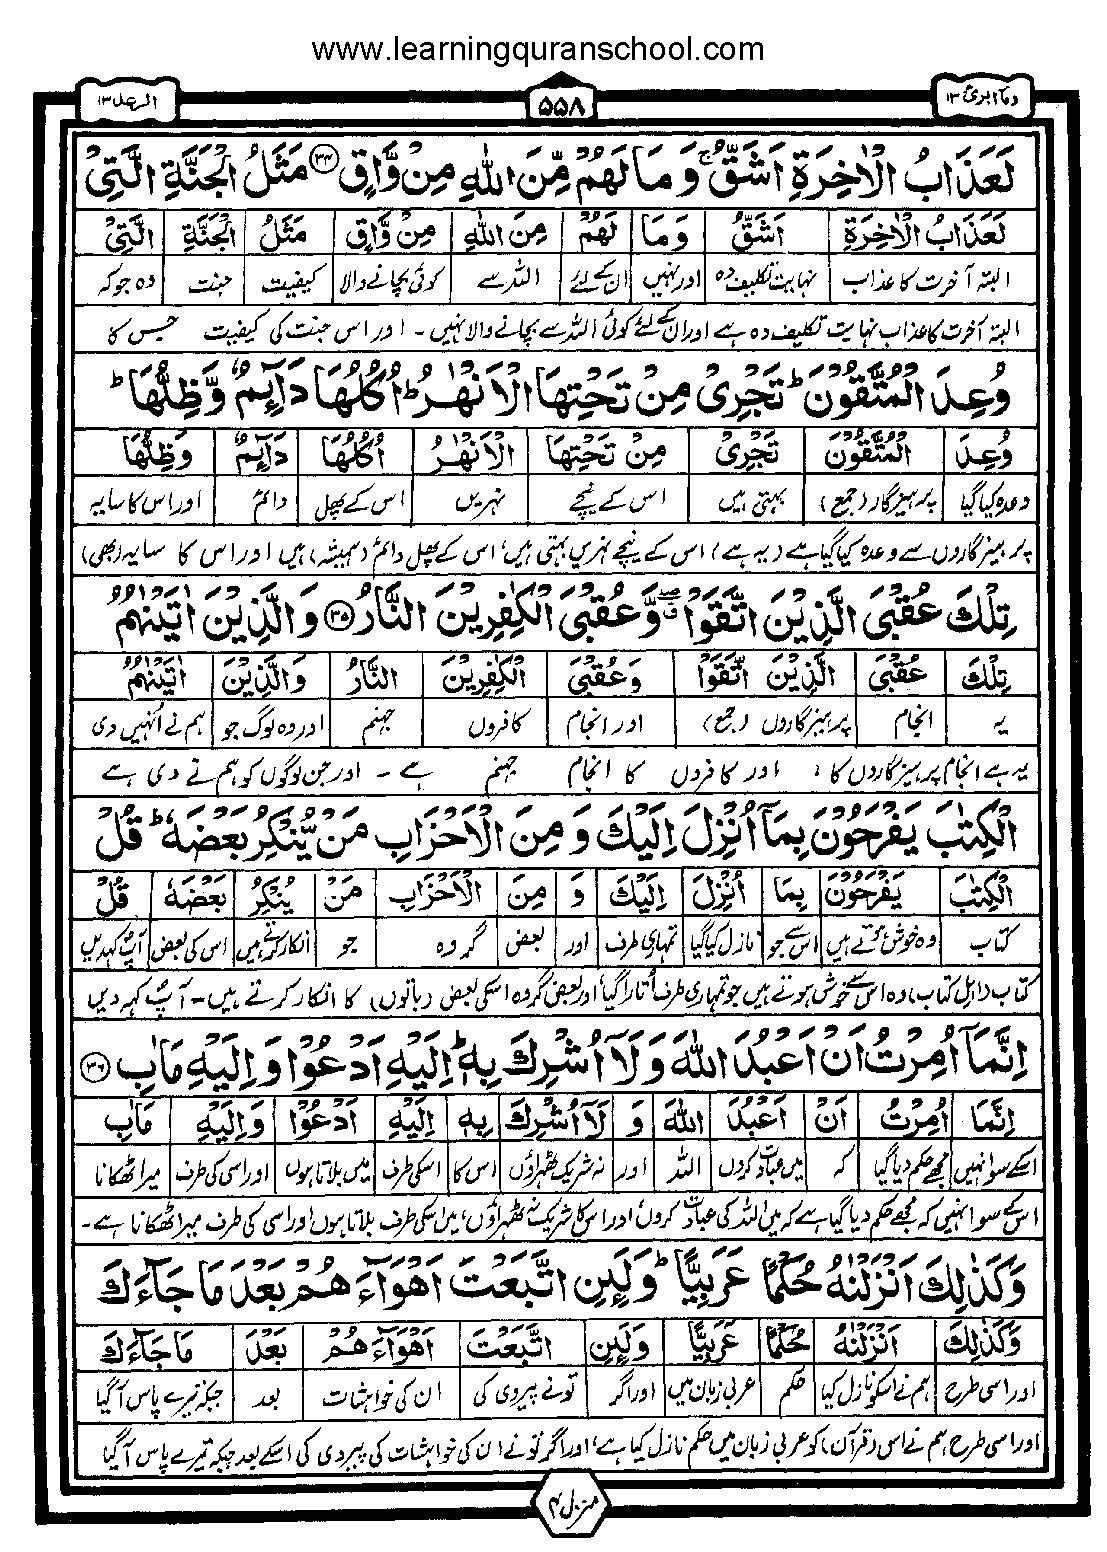 www.learningquranschool.com
وما ابرئ ١٣
۵۵۸
الرعد ١٣
لَعَذَابُ الْاٰخِرَةِ اَشَقُّ ۚ وَ مَا لَهُمْ مِّنَ اللّٰهِ مِنْ وَّاقٍ ۝۳۴ مَثَلُ الْجَنَّةِ الَّتِيْ
لَعَذَابُ الْاٰخِرَةِ اَشَقُّ وَ مَا لَهُمْ مِنَ اللّٰهِ مِنْ وَّاقٍ مَثَلُ الْجَنَّةِ الَّتِيْ
البتہ آخرت کا عذاب نہایت تکلیف دہ اور نہیں ان کے لئے اللہ سے کوئی بچانے والا کیفیت جنت وہ جو کہ
البتہ آخرت کا عذاب نہایت تکلیف دہ ہے اور ان کے لئے کوئی اللہ سے بچانے والا نہیں ۔ اور اس جنت کی کیفیت جس کا
وُعِدَ الْمُتَّقُوْنَ ؕ تَجْرِيْ مِنْ تَحْتِهَا الْاَنْهٰرُ ؕ اُكُلُهَا دَآىِٕمٌ وَّظِلُّهَا ؕ
وُعِدَ الْمُتَّقُوْنَ تَجْرِيْ مِنْ تَحْتِهَا الْاَنْهٰرُ اُكُلُهَا دَآىِٕمٌ وَّظِلُّهَا
وعدہ کیا گیا پرہیزگار (جمع) بہتی ہیں اس کے نیچے نہریں اس کے پھل دائم اور اس کا سایہ
پرہیزگاروں سے وعدہ کیا گیا ہے (یہ ہے) اس کے نیچے نہریں بہتی ہیں، اس کے پھل دائم (ہمیشہ) ہیں اور اس کا سایہ (بھی)
تِلْكَ عُقْبَى الَّذِيْنَ اتَّقَوْا ۖ وَّعُقْبَى الْكٰفِرِيْنَ النَّارُ ۝۳۵ وَالَّذِيْنَ اٰتَيْنٰهُمُ
تِلْكَ عُقْبَى الَّذِيْنَ اتَّقَوْا وَعُقْبَى الْكٰفِرِيْنَ النَّارُ وَالَّذِيْنَ اٰتَيْنٰهُمُ
یہ انجام پرہیزگاروں (جمع) اور انجام کافروں جہنم اور وہ لوگ جو ہم نے انہیں دی
یہ ہے انجام پرہیزگاروں کا، اور کافروں کا انجام جہنم ہے ۔ اور جن لوگوں کو ہم نے دی ہے
الْكِتٰبَ يَفْرَحُوْنَ بِمَاۤ اُنْزِلَ اِلَيْكَ وَ مِنَ الْاَحْزَابِ مَنْ يُّنْكِرُ بَعْضَهٗ ؕ قُلْ
الْكِتٰبَ يَفْرَحُوْنَ بِمَا اُنْزِلَ اِلَيْكَ وَ مِنَ الْاَحْزَابِ مَنْ يُنْكِرُ بَعْضَهٗ قُلْ
کتاب وہ خوش ہوتے ہیں اس سے جو نازل کیا گیا تمہاری طرف اور بعض گروہ جو انکار کرتے ہیں اس کی بعض آپ کہہ دیں
کتاب (اہل کتاب)، وہ اس سے خوش ہوتے ہیں جو تمہاری طرف اتارا گیا، اور بعض گروہ اسکی بعض (باتوں) کا انکار کرتے ہیں ۔ آپ کہہ دیں
اِنَّمَاۤ اُمِرْتُ اَنْ اَعْبُدَ اللّٰهَ وَ لَاۤ اُشْرِكَ بِهٖ ؕ اِلَيْهِ اَدْعُوْا وَ اِلَيْهِ مَاٰبِ ۝۳۶
اِنَّمَا اُمِرْتُ اَنْ اَعْبُدَ اللّٰهَ وَ لَاۤ اُشْرِكَ بِهٖ اِلَيْهِ اَدْعُوْا وَ اِلَيْهِ مَاٰبِ
اسکے سوا نہیں مجھے حکم دیا گیا کہ میں عبادت کروں اللہ اور نہ شریک ٹھہراؤں اس کا اسکی طرف میں بلاتا ہوں اور اسی کی طرف میرا ٹھکانا
اس کے سوا نہیں کہ مجھے حکم دیا گیا ہے کہ میں اللہ کی عبادت کروں اور اس کا شریک نہ ٹھہراؤں، میں اسکی طرف بلاتا ہوں اور اسی کی طرف میرا ٹھکانا ہے ۔
وَكَذٰلِكَ اَنْزَلْنٰهُ حُكْمًا عَرَبِيًّا ؕ وَلَىِٕنِ اتَّبَعْتَ اَهْوَآءَهُمْ بَعْدَ مَا جَآءَكَ
وَكَذٰلِكَ اَنْزَلْنٰهُ حُكْمًا عَرَبِيًّا وَلَىِٕنِ اتَّبَعْتَ اَهْوَآءَهُمْ بَعْدَ مَا جَآءَكَ
اور اسی طرح ہم نے اسکو نازل کیا حکم عربی زبان میں اور اگر تو نے پیروی کی ان کی خواہشات بعد جبکہ تیرے پاس آ گیا
اور اسی طرح ہم نے اس (قرآن) کو عربی زبان میں حکم نازل کیا ہے، اور اگر تو نے ان کی خواہشات کی پیروی کی اسکے بعد جبکہ تیرے پاس آ گیا
منزل ۳